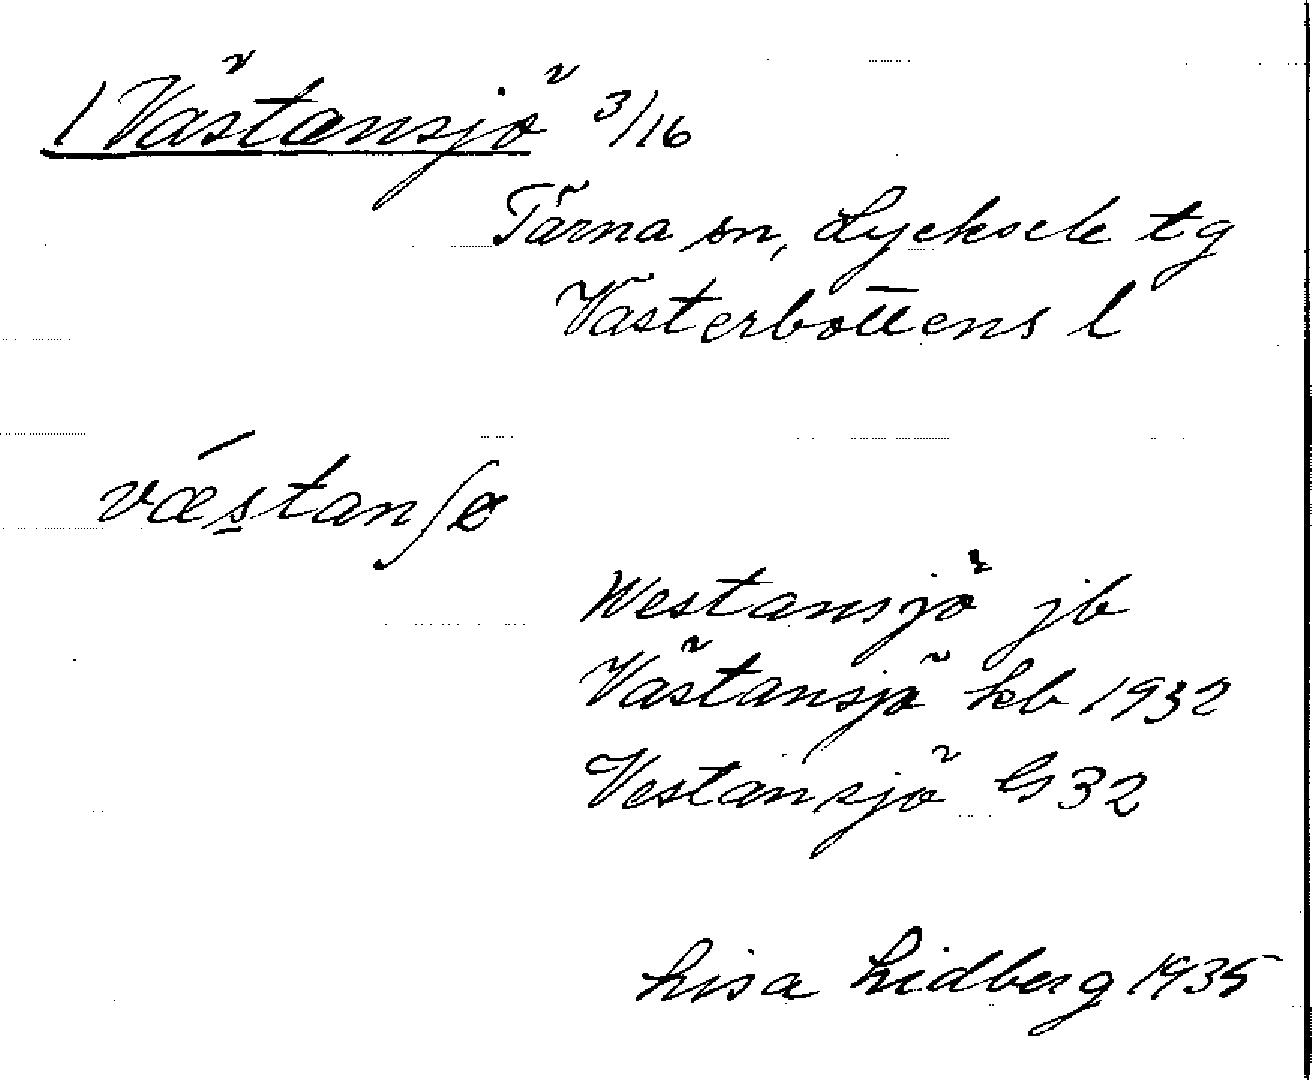 1 Västansjö 3/16
Tärna sn, Lycksele tg
Västerbottens l
væ´s̲tanʃö
Westansjö jb
Västansjö kb 1932
Vestansjö G 32
Lisa Lidberg 1935